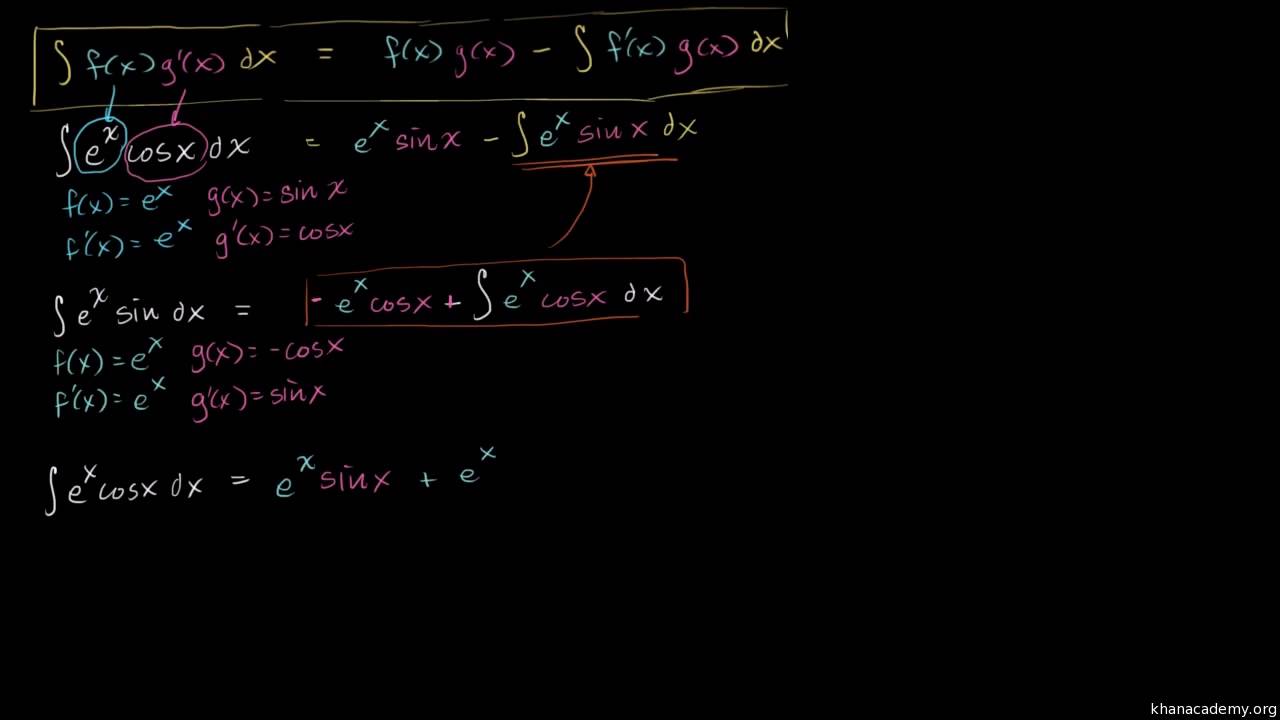 ∫ f(x) g'(x) dx = f(x) g(x) - ∫ f'(x) g(x) dx
∫ eˣ cosx dx = eˣ sinx - ∫ eˣ sin x dx
f(x) = eˣ g(x) = sin x
f'(x) = eˣ g'(x) = cosx
∫ eˣ sin dx = - eˣ cosx + ∫ eˣ cosx dx
f(x) = eˣ g(x) = -cosx
f'(x) = eˣ g'(x) = sinx
∫ eˣ cosx dx = eˣ sinx + eˣ
khanacademy.org